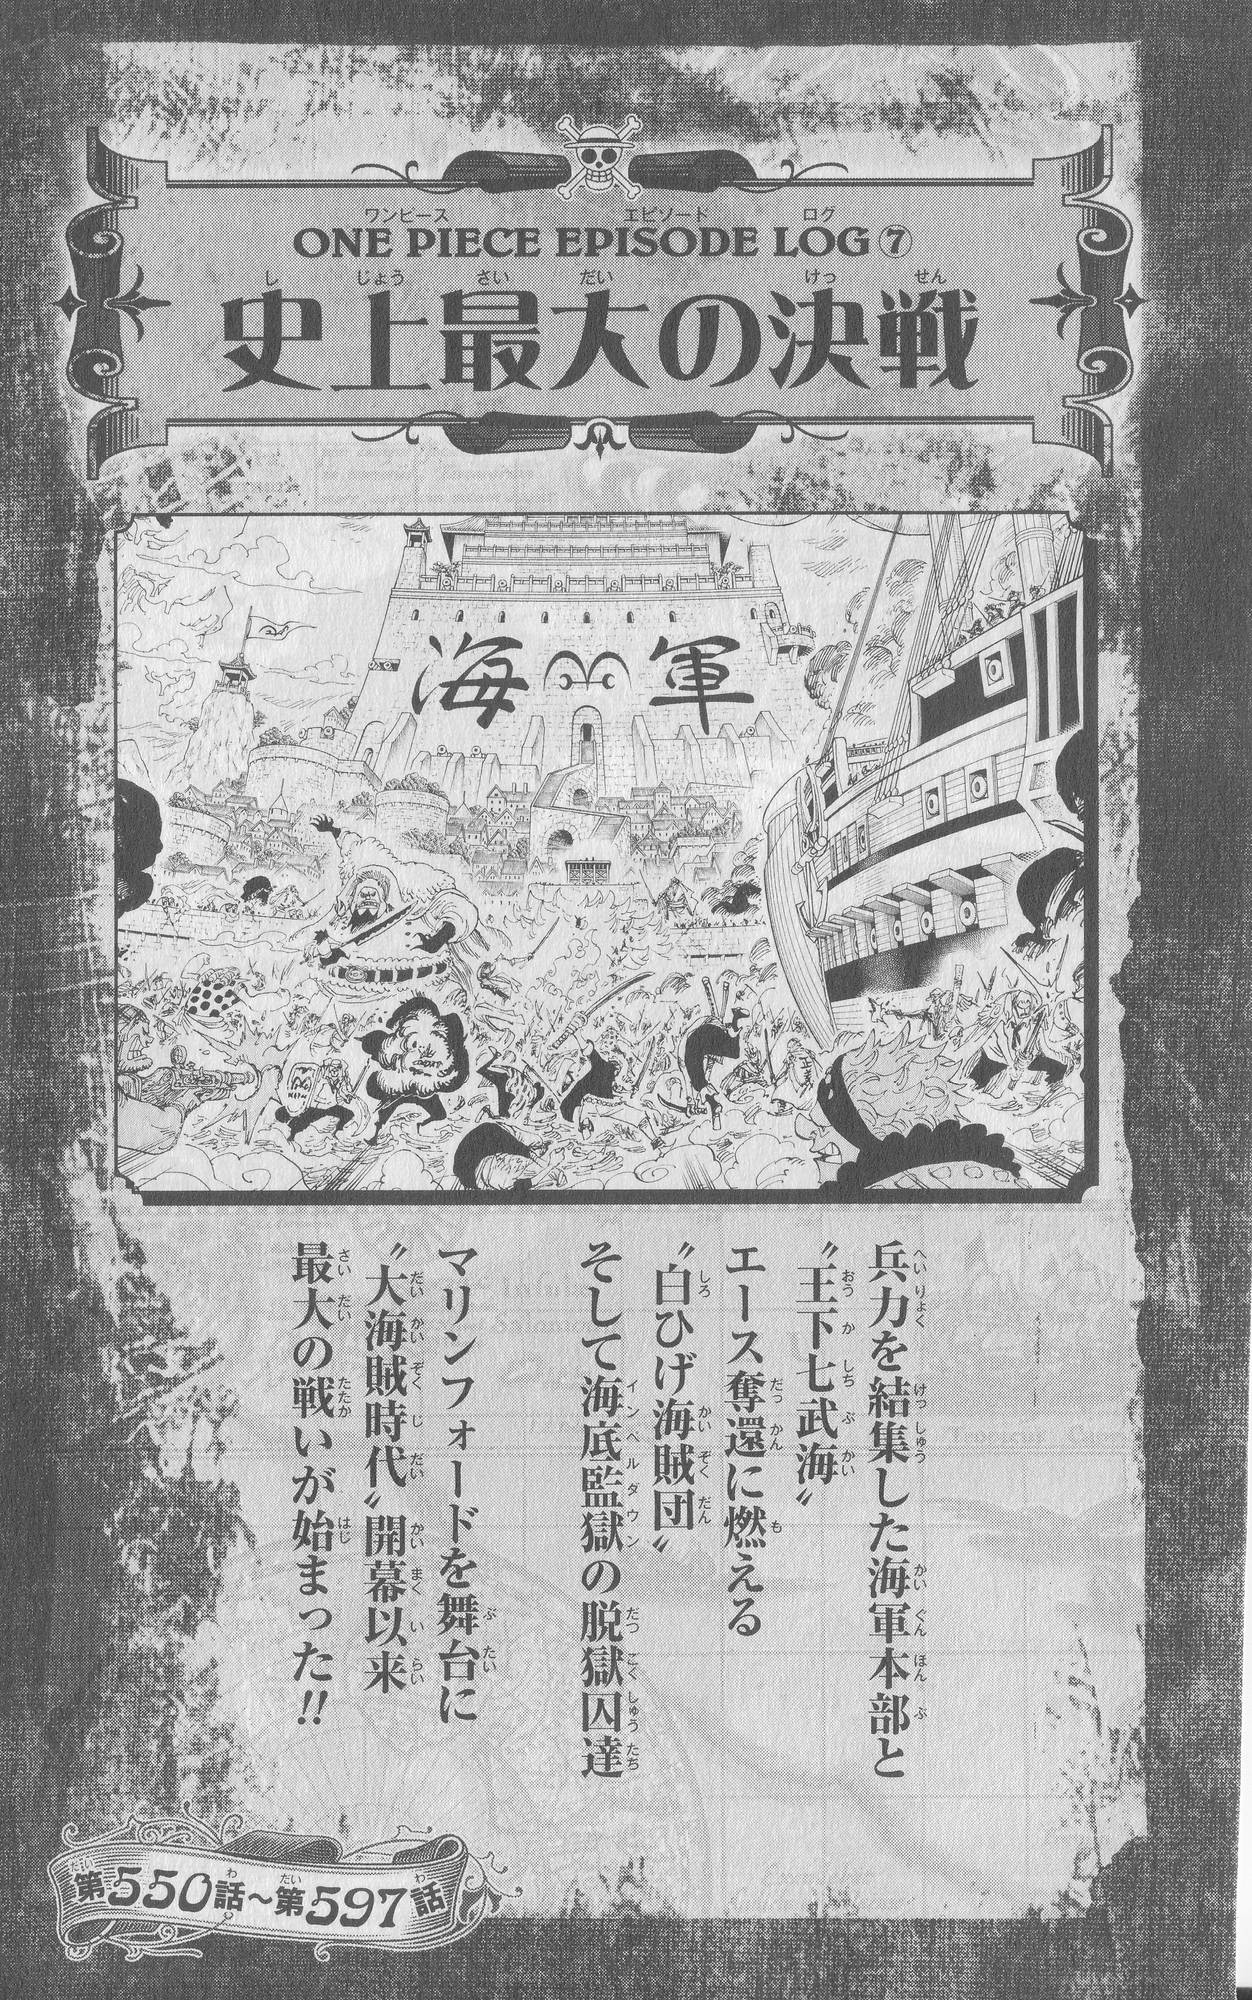 ONE PIECE EPISODE LOG⑦
史上最大の決戦
海 軍
兵力を結集した海軍本部と
〝王下七武海〟
エース奪還に燃える
〝白ひげ海賊団〟
そして海底監獄の脱獄囚達
マリンフォードを舞台に
〝大海賊時代〟開幕以来
最大の戦いが始まった!!
第550話〜第597話